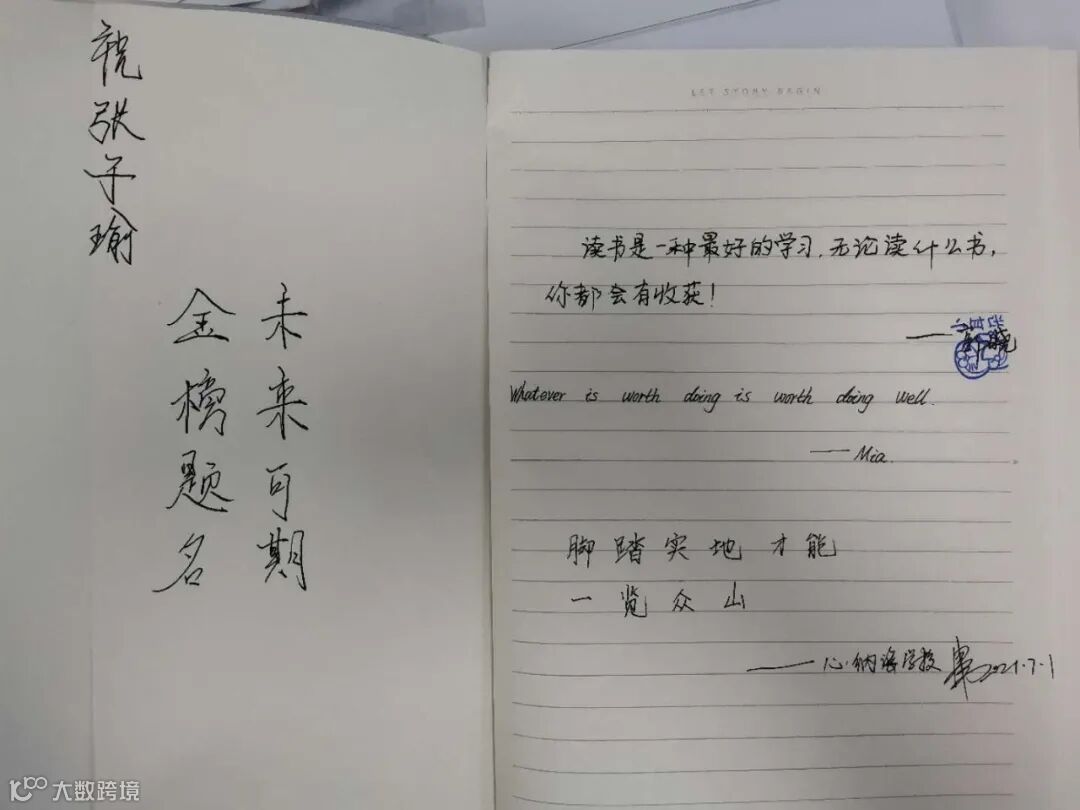 祝张子瑜
未来可期
金榜题名
LET STORY BEGIN
读书是一种最好的学习,无论读什么书,
你都会有收获!
Whatever is worth doing is worth doing well.
——Mia.
脚踏实地才能
一览众山
——心纳海学校 2021.7.1
大数跨境